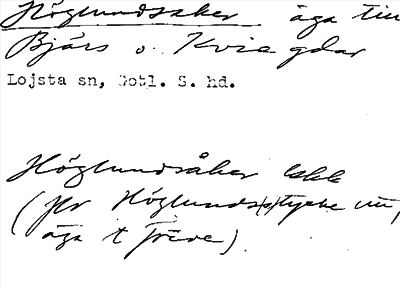 Höglundsåker äga till
Bjärs o. Kvie gdar
Lojsta sn, Gotl. S. hd.
Höglundsåker
( Höglunds(s)tycke
äga t